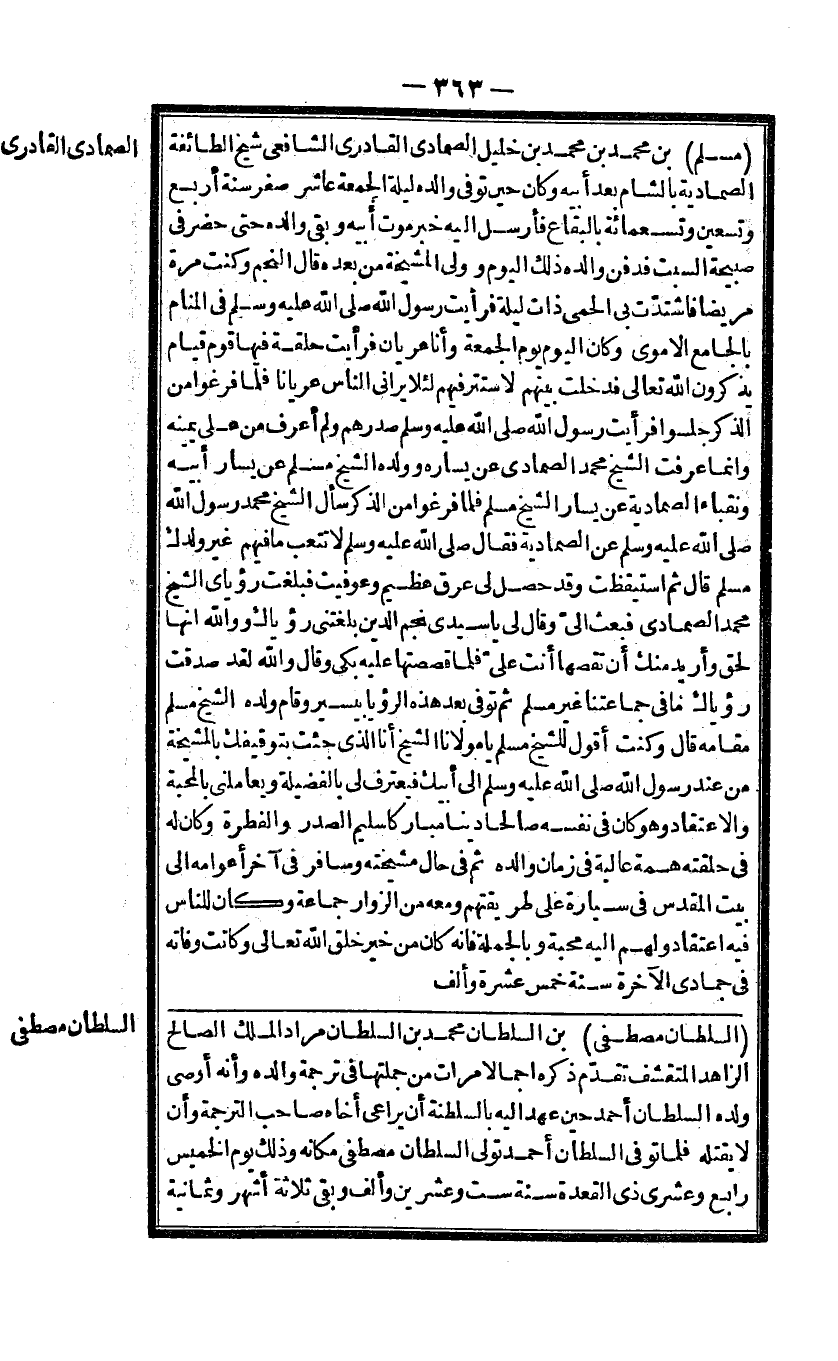 — ٣٦٣ —
الصمادى القادرى
(مسلم) بن محمد بن محمد بن خليل الصمادى القادرى الشافعى شيخ الطائفة
الصمادية بالشام بعد أبيه وكان حين توفى والده ليلة الجمعة عاشر صفر سنة أربع
وتسعين وتسعمائة بالبقاع فأرسل اليه خبر موت أبيه وبقى والده حتى حضر فى
صبيحة السبت فدفن والده ذلك اليوم وولى المشيخة من بعده قال النجم وكنت مرة
مريضا فاشتدّت بى الحمى ذات ليلة فرأيت رسول الله صلى الله عليه وسلم فى المنام
بالجامع الاموى وكان اليوم يوم الجمعة وأنا عريان فرأيت حلقة فيها قوم قيام
يذكرون الله تعالى فدخلت بينهم لاستتر فيهم لئلا يرانى الناس عريانا فلما فرغوا من
الذكر جلسوا فرأيت رسول الله صلى الله عليه وسلم صدرهم ولم أعرف من على يمينه
وانما عرفت الشيخ محمد الصمادى عن يساره وولده الشيخ مسلم عن يسار أبيه
ونقباء الصمادية عن يسار الشيخ مسلم فلما فرغوا من الذكر سأل الشيخ محمد رسول الله
صلى الله عليه وسلم عن الصمادية فقال صلى الله عليه وسلم لا تتعب ما فيهم غير ولدك
مسلم قال ثم استيقظت وقد حصل لى عرق عظيم وعوفيت فبلغت رؤياى الشيخ
محمد الصمادى فبعث الىّ وقال لى ياسيدى نجم الدين بلغتنى رؤياك ووالله انها
لحق وأريد منك أن تقصها أنت علىّ فلما قصصتها عليه بكى وقال والله لقد صدقت
رؤياك ما فى جماعتنا غير مسلم ثم توفى بعد هذه الرؤيا بيسير وقام ولده الشيخ مسلم
مقامه قال وكنت أقول للشيخ مسلم يا مولانا الشيخ أنا الذى جئت بتوقيفك بالمشيخة
من عند رسول الله صلى الله عليه وسلم الى أبيك فيعترف لى بالفضيلة ويعاملنى بالمحبة
والاعتقاد وهو كان فى نفسه صالحا دينا مباركا سليم الصدر والفطرة وكان له
فى حلقته همة عالية فى زمان والده ثم فى حال مشيخته وسافر فى آخر أعوامه الى
بيت المقدس فى سيارة على طريقتهم ومعه من الزوار جماعة وكان للناس
فيه اعتقاد ولهم اليه محبة وبالجملة فانه كان من خير خلق الله تعالى وكانت وفاته
فى جمادى الآخرة سنة خمس عشرة وألف
السلطان مصطفى
(السلطان مصطفى) بن السلطان محمد بن السلطان مراد الملك الصالح
الزاهد المتقشف تقدّم ذكره اجمالا مرات من جملتها فى ترجمة والده وأنه أوصى
ولده السلطان أحمد حين عهد اليه بالسلطنة أن يراعى أخاه صاحب الترجمة وأن
لا يقتله فلما توفى السلطان أحمد تولى السلطان مصطفى مكانه وذلك يوم الخميس
رابع وعشرى ذى القعدة سنة ست وعشرين وألف وبقى ثلاثة أشهر وثمانية